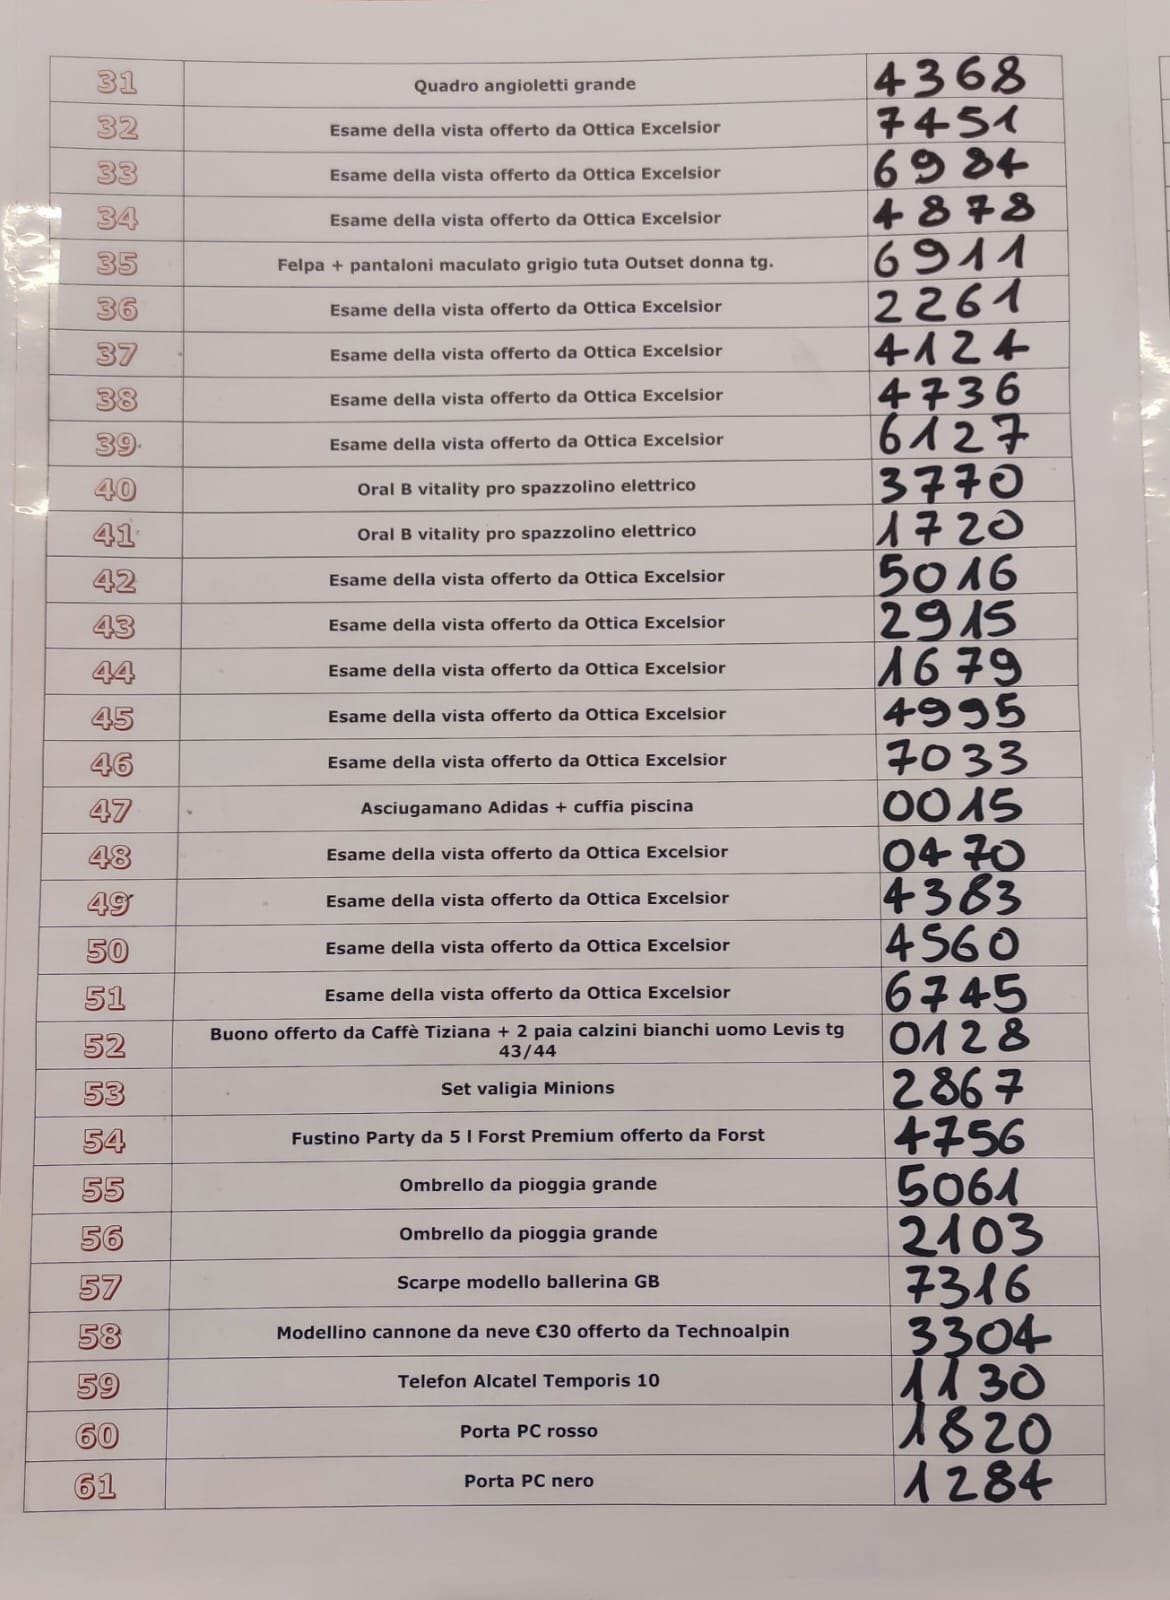 31 Quadro angioletti grande 4368
32 Esame della vista offerto da Ottica Excelsior 7451
33 Esame della vista offerto da Ottica Excelsior 6984
34 Esame della vista offerto da Ottica Excelsior 4878
35 Felpa + pantaloni maculato grigio tuta Outset donna tg. 6911
36 Esame della vista offerto da Ottica Excelsior 2261
37 Esame della vista offerto da Ottica Excelsior 4124
38 Esame della vista offerto da Ottica Excelsior 4736
39 Esame della vista offerto da Ottica Excelsior 6127
40 Oral B vitality pro spazzolino elettrico 3770
41 Oral B vitality pro spazzolino elettrico 1720
42 Esame della vista offerto da Ottica Excelsior 5016
43 Esame della vista offerto da Ottica Excelsior 2915
44 Esame della vista offerto da Ottica Excelsior 1679
45 Esame della vista offerto da Ottica Excelsior 4995
46 Esame della vista offerto da Ottica Excelsior 7033
47 Asciugamano Adidas + cuffia piscina 0015
48 Esame della vista offerto da Ottica Excelsior 0470
49 Esame della vista offerto da Ottica Excelsior 4383
50 Esame della vista offerto da Ottica Excelsior 4560
51 Esame della vista offerto da Ottica Excelsior 6745
52 Buono offerto da Caffè Tiziana + 2 paia calzini bianchi uomo Levis tg 0128
43/44
53 Set valigia Minions 2867
54 Fustino Party da 5 l Forst Premium offerto da Forst 4756
55 Ombrello da pioggia grande 5061
56 Ombrello da pioggia grande 2103
57 Scarpe modello ballerina GB 7316
58 Modellino cannone da neve €30 offerto da Technoalpin 3304
59 Telefon Alcatel Temporis 10 1130
60 Porta PC rosso 1820
61 Porta PC nero 1284